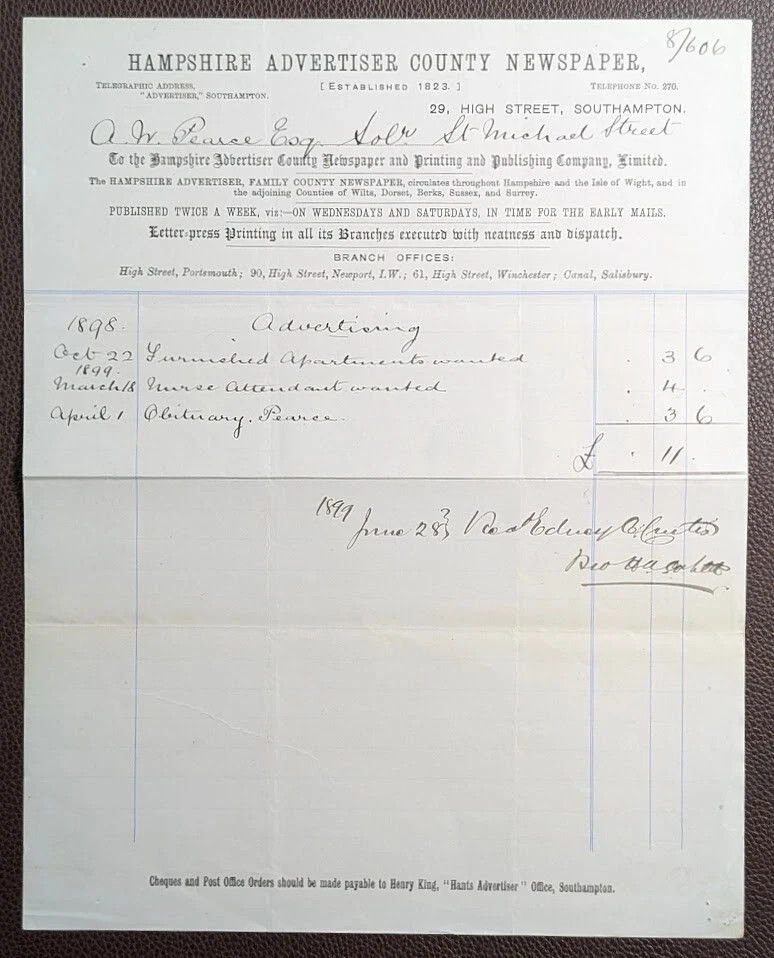 8/606
HAMPSHIRE ADVERTISER COUNTY NEWSPAPER,
TELEGRAPHIC ADDRESS,
"ADVERTISER," SOUTHAMPTON.
[ESTABLISHED 1823.]
TELEPHONE No. 270.
29, HIGH STREET, SOUTHAMPTON.
A. W. Pearce Esq. Solr St Michael Street
To the Hampshire Advertiser County Newspaper and Printing and Publishing Company, Limited.
The HAMPSHIRE ADVERTISER, FAMILY COUNTY NEWSPAPER, circulates throughout Hampshire and the Isle of Wight, and in
the adjoining Counties of Wilts, Dorset, Berks, Sussex, and Surrey.
PUBLISHED TWICE A WEEK, viz:—ON WEDNESDAYS AND SATURDAYS, IN TIME FOR THE EARLY MAILS.
Letter-press Printing in all its Branches executed with neatness and dispatch.
BRANCH OFFICES:
High Street, Portsmouth; 90, High Street, Newport, I.W.; 61, High Street, Winchester; Canal, Salisbury.
1898. Advertising
Oct 22 Furnished Apartments wanted . 3 6
1899.
March 18 Nurse Attendant wanted . 4 .
April 1 Obituary. Pearce. . 3 6
£ . 11 .
1899
June 28
Cheques and Post Office Orders should be made payable to Henry King, "Hants Advertiser" Office, Southampton.